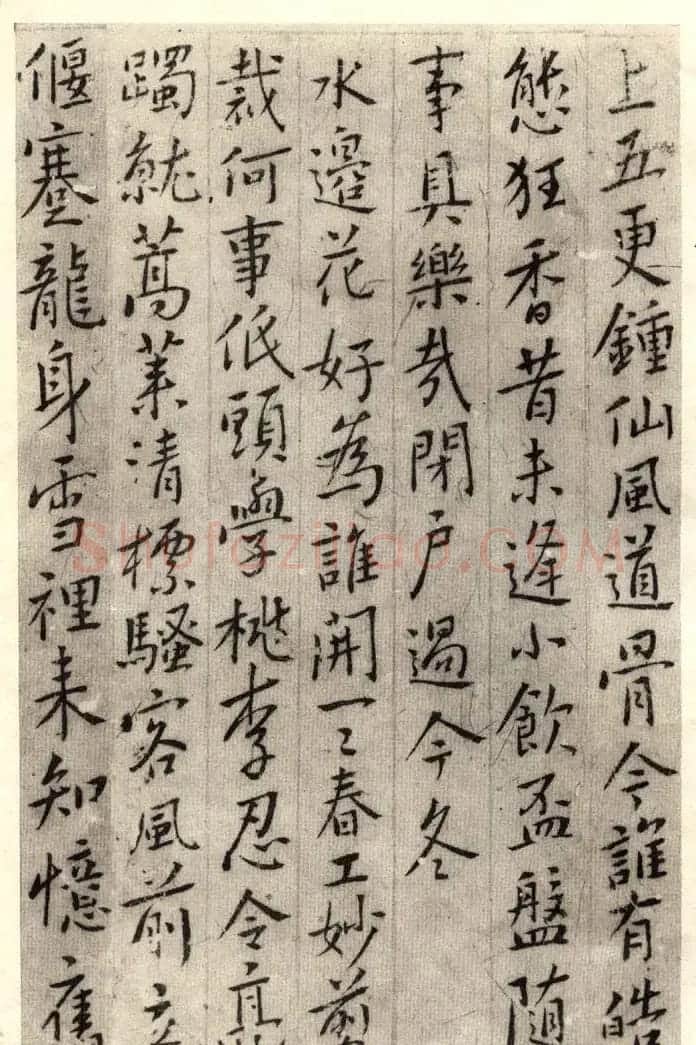 上五更鍾仙風道骨今誰有皓
態狂香昔未逢小飲盃盤隨
事具樂哉閉戶過今冬
水邊花好為誰開一一春工妙剪
裁何事低頭學桃李忍令
躅就蒿萊清標騷客風前立
偃蹇龍身雪裡來知憶舊
Shufaziliao.COM